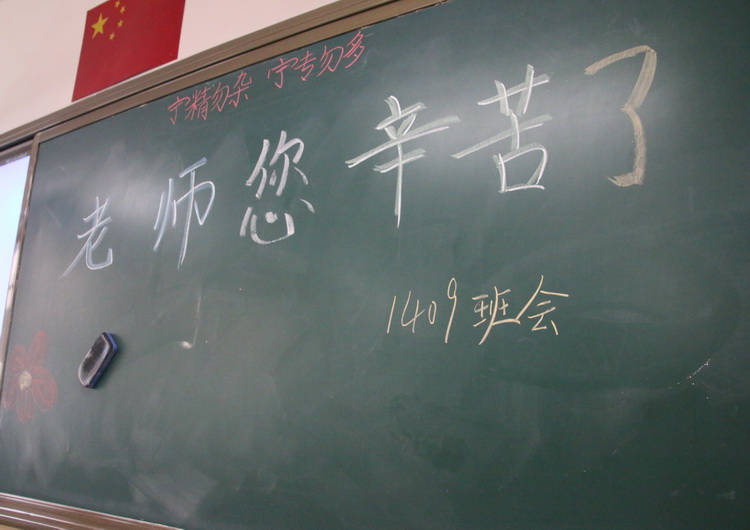 宁精勿杂 宁专勿多
老师您辛苦了
1409班会